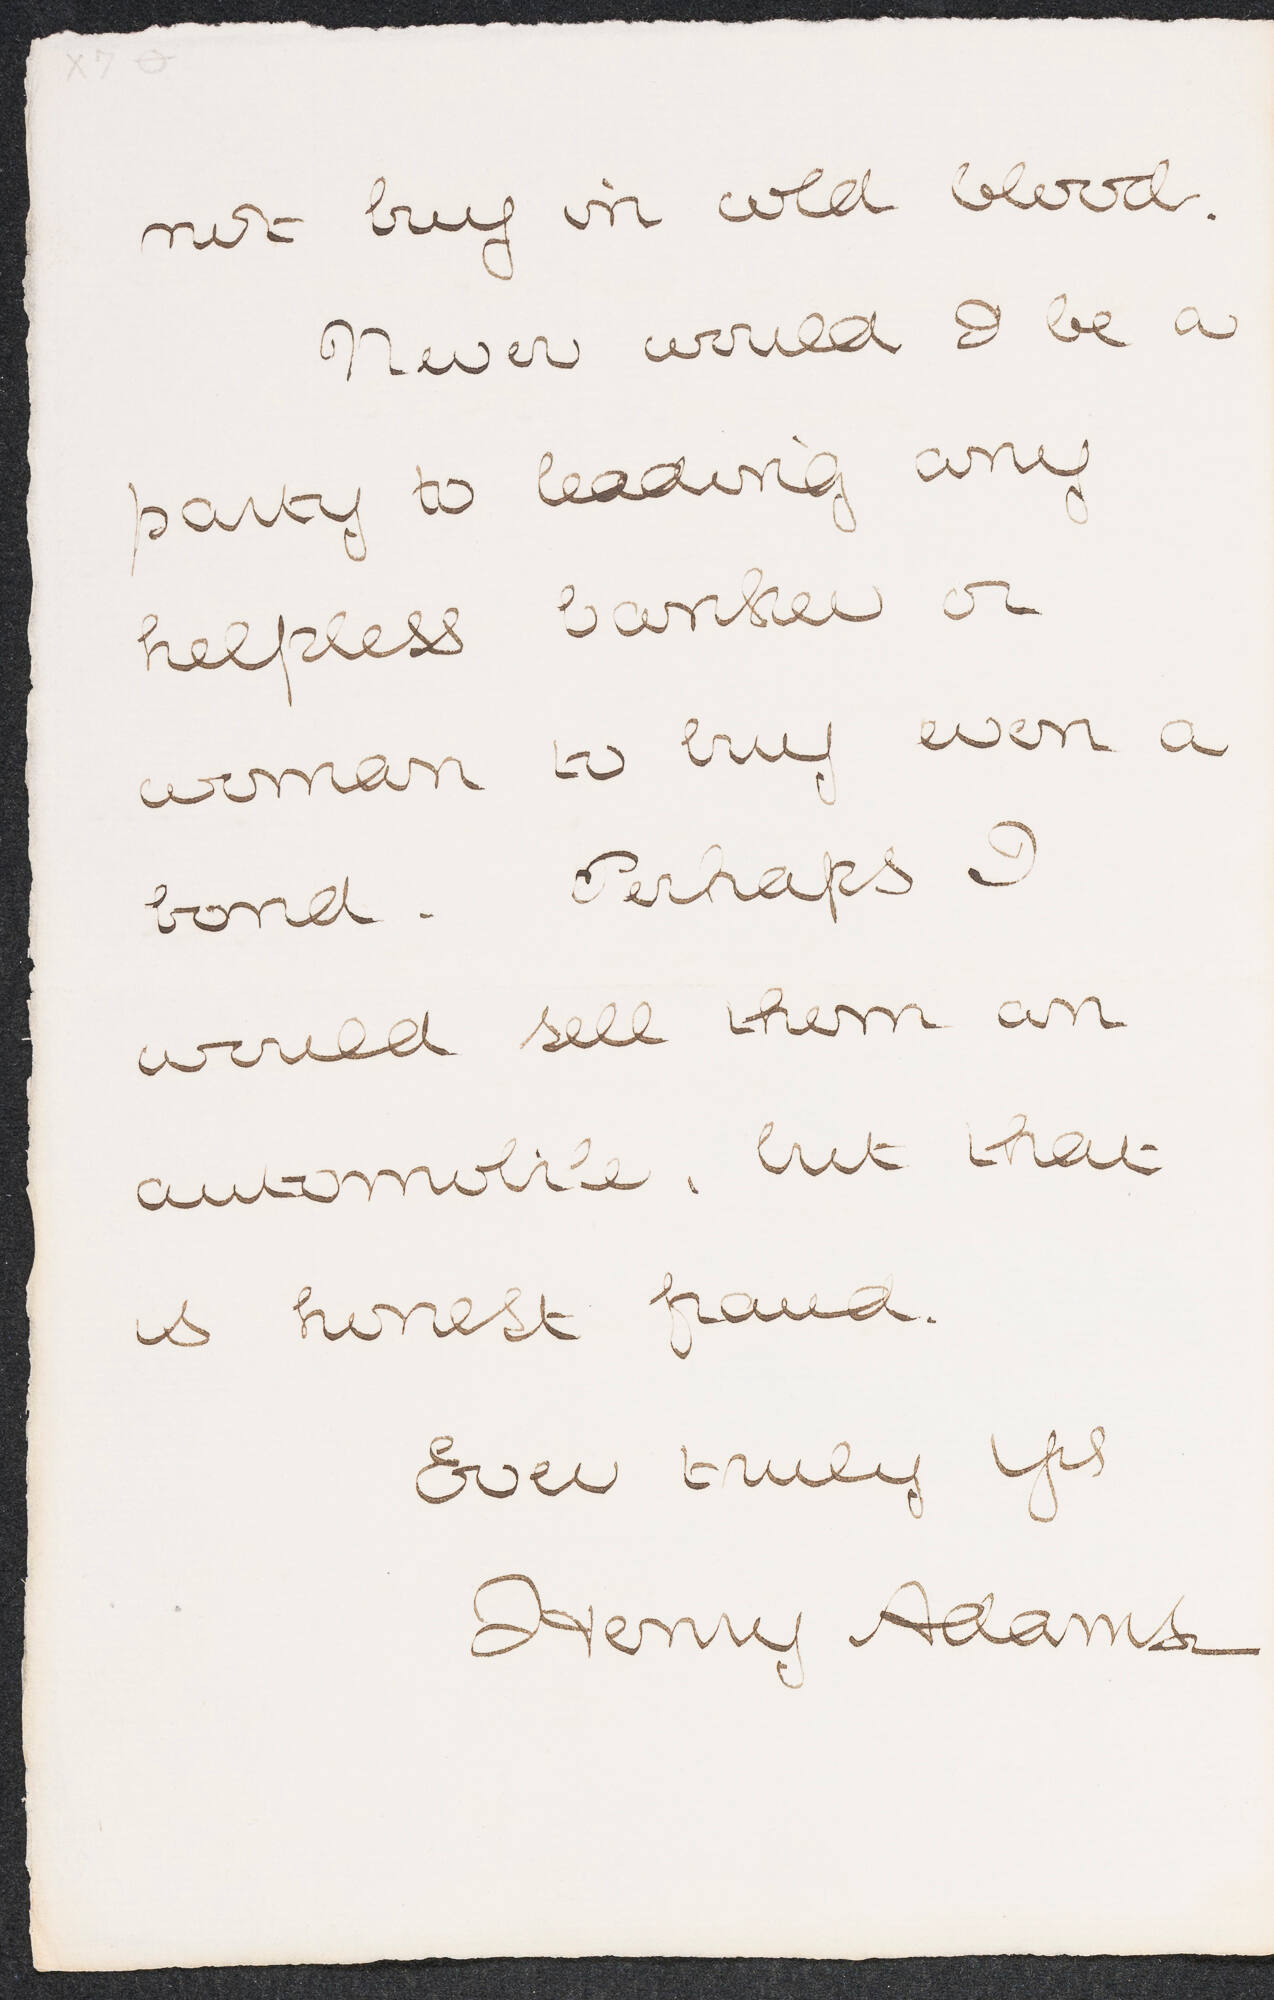 X7
not buy in cold blood.
Never would I be a
party to leading any
helpless banker or
woman to buy even a
bond. Perhaps I
would sell them an
automobile, but that
is honest fraud.
Ever truly Yrs
Henry Adams